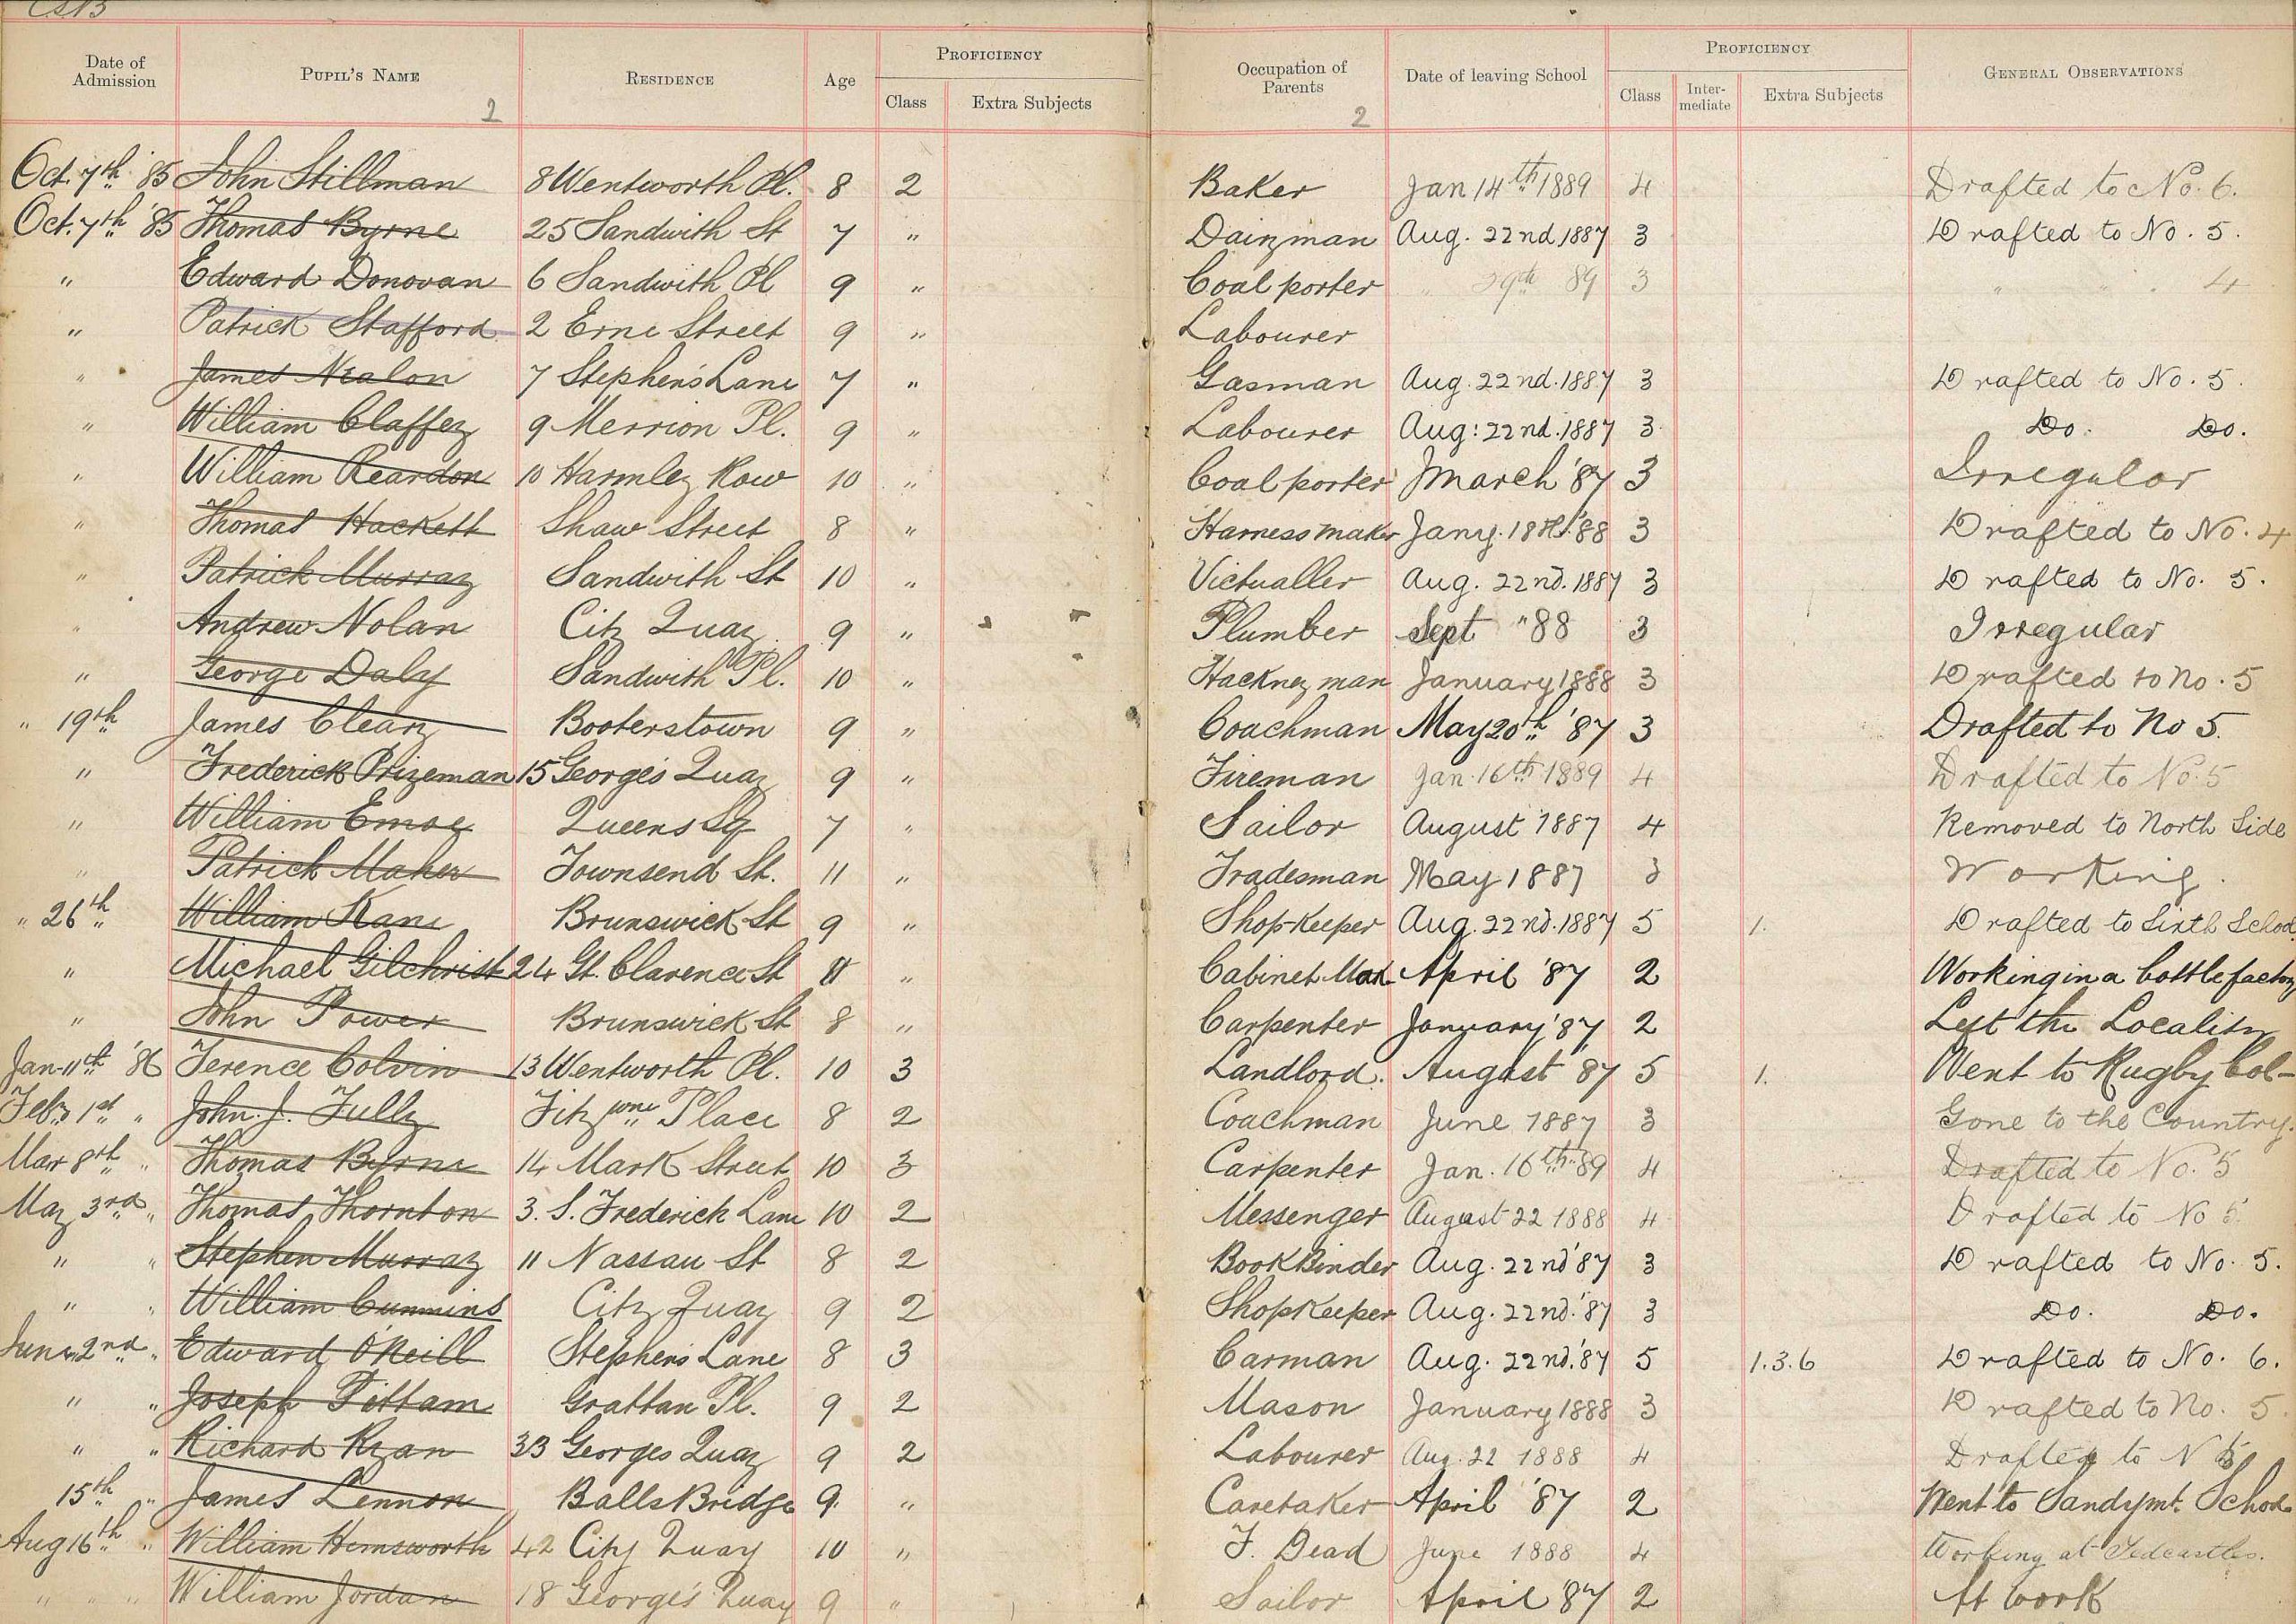 CSB
Date of Admission Pupil's Name Residence Age Proficiency Class Extra Subjects Occupation of Parents Date of leaving School Proficiency Class Inter-mediate Extra Subjects General Observations
2 2
Oct. 7th '85 John Stillman 8 Wentworth Pl. 8 2 Baker Jan 14th 1889 4 Drafted to No. 6.
Oct. 7th '85 Thomas Byrne 25 Sandwith St 7 " Dairyman Aug. 22nd 1887 3 Drafted to No. 5.
" Edward Donovan 6 Sandwith Pl 9 " Coal porter " 29th 89 3 " " " 4
" Patrick Stafford 2 Erne Street 9 " Labourer
" James Nealon 7 Stephen's Lane 7 " Gasman Aug. 22nd. 1887 3 Drafted to No. 5.
" William Claffey 9 Merrion Pl. 9 " Labourer Aug: 22nd. 1887 3 Do. Do.
" William Reardon 10 Harmley Row 10 " Coal porter March '87 3 Irregular
" Thomas Hackett Shaw Street 8 " Harness maker Jany. 18th '88 3 Drafted to No. 4
" Patrick Murray Sandwith St 10 " Victualler Aug. 22nd. 1887 3 Drafted to No. 5.
" Andrew Nolan City Quay 9 " Plumber Sept "88 3 Irregular
" George Daly Sandwith Pl. 10 " Hackney man January 1888 3 Drafted to No. 5
" 19th James Cleary Booterstown 9 " Coachman May 20th '87 3 Drafted to No 5.
" Frederick Prizeman 15 George's Quay 9 " Fireman Jan. 16th 1889 4 Drafted to No. 5
" William Queens Sq 7 " Sailor August 1887 4 Removed to North Side
" Patrick Maher Townsend St. 11 " Tradesman May 1887 3 Working.
" 26th William Kane Brunswick St 9 " Shop-Keeper Aug. 22nd. 1887 5 1. Drafted to Sixth School
" Michael Gilchrist 24 Gt. Clarence St 11 " Cabinet Mak April '87 2 Working in a bottle factory
" John Power Brunswick St 8 " Carpenter January '87 2 Left the Locality
Jan 11th '86 Terence Colvin 13 Wentworth Pl. 10 3 Landlord. August '87 5 1. Went to Rugby Col-
Feby 1st " John. J. Tully Fitzwm Place 8 2 Coachman June 1887 3 Gone to the Country.
Mar 8th " Thomas Byrne 14 Mark Street 10 3 Carpenter Jan. 16th 89 4 Drafted to No. 5
May 3rd " Thomas Thornton 3. S. Frederick Lane 10 2 Messenger August 22 1888 4 Drafted to No 5
" " Stephen Murray 11 Nassau St 8 2 Book Binder Aug. 22nd '87 3 Drafted to No. 5.
" " William Cummins City Quay 9 2 ShopKeeper Aug. 22nd. '87 3 Do. Do.
June 2nd " Edward O'Neill Stephens Lane 8 3 Carman Aug. 22nd. '87 5 1.3.6 Drafted to No. 6.
" " Joseph Pittam Grattan Pl. 9 2 Mason January 1888 3 Drafted to No. 5
" " Richard Ryan 33 Georges Quay 9 2 Labourer Aug. 22 1888 4 Drafted to N 5
15th " James Lennon Balls Bridge 9 " Caretaker April '87 2 Went to Sandymt. School
Aug 16th " William Hemsworth 42 City Quay 10 " F. Dead June 1888 4 Working at Tedcastles.
" " " William Jordan 18 George's Quay 9 " Sailor April '87 2 At work